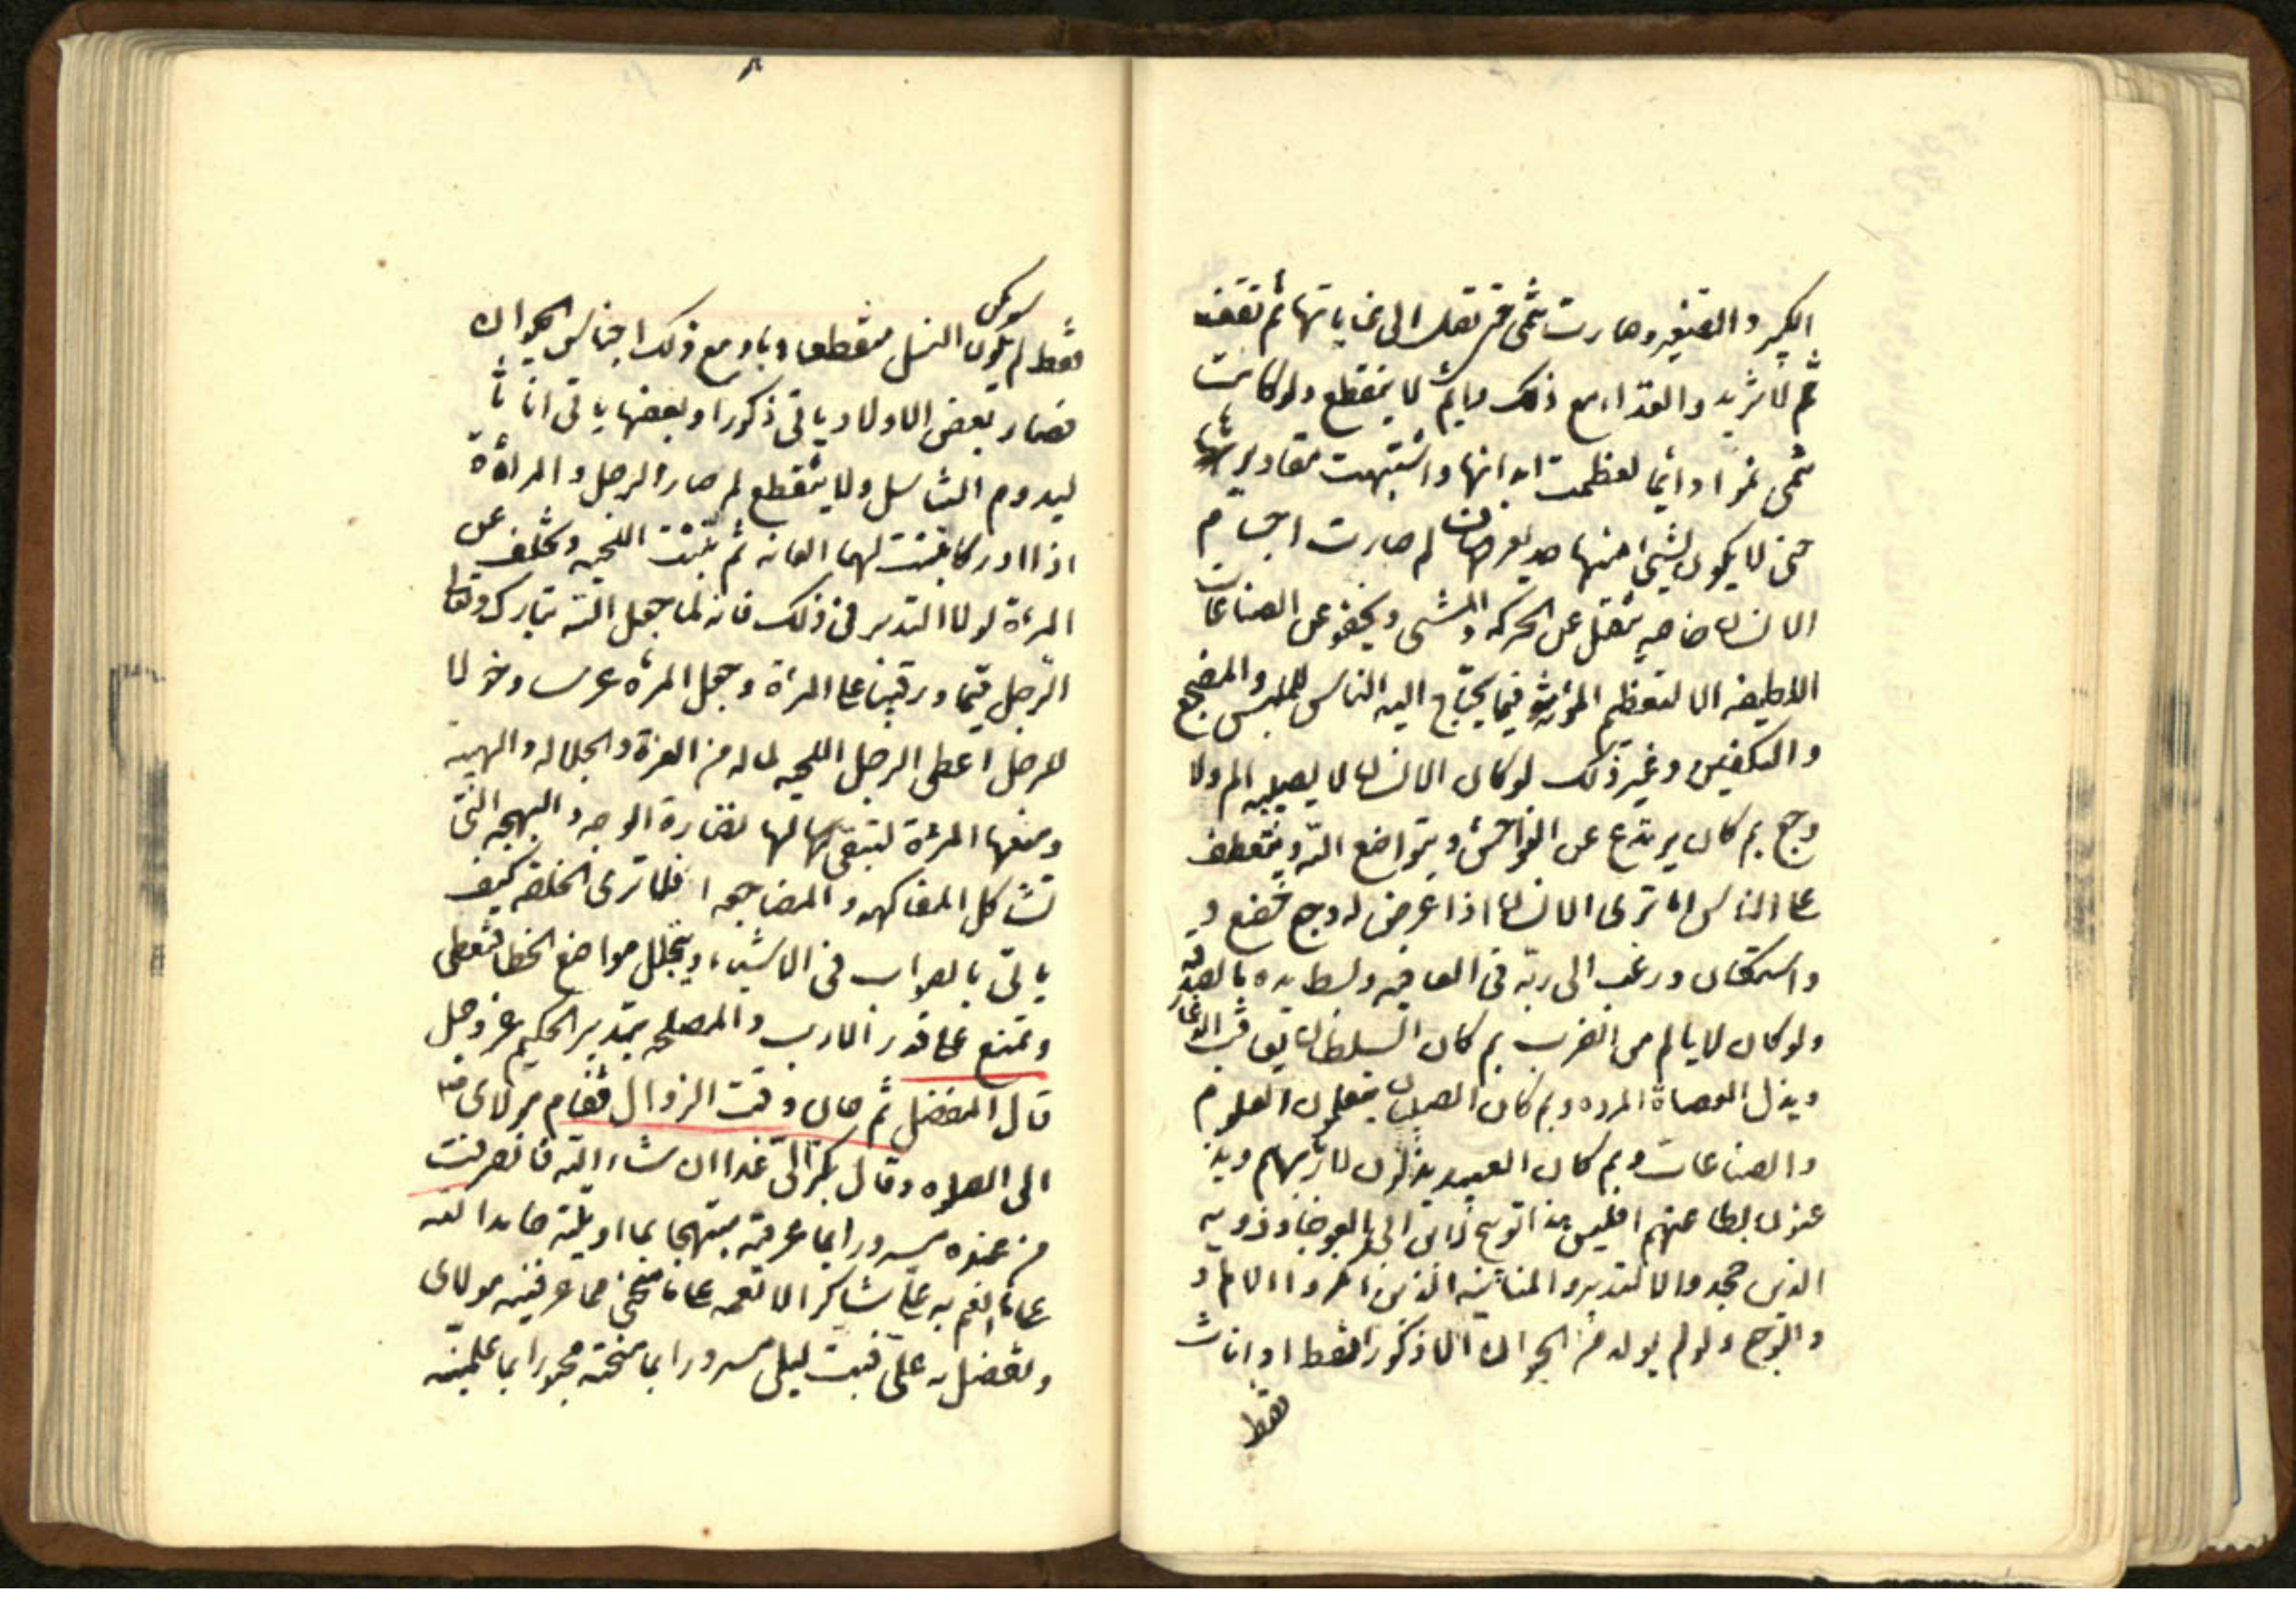 الكبير والصغير وصارت تنمى حتى تصل الى غاياتها ثم تقف
ثم لا تزيد والغذاء مع ذلك دايم لا ينقطع ولو كانت
تنمى نموا دائما لعظمت ابدانها واشتبهت مقاديرها
حتى لا يكون لشيء منها حد يعرف لم صارت اجسام
الانسان خاصه تثقل عن الحركه والمشى ويجفو عن الصناعات
اللطيفه الا لتعظيم المؤنه فيما يحتاج اليه الناس للملبس والمضجع
والتكفين وغير ذلك لو كان الانسان لا يصيبه الم ولا
وجع بم كان يرتدع عن الفواحش ويتواضع لله ويتعطف
على الناس اما ترى الانسان اذا عرض له وجع خضع و
واستكان ورغب الى ربه فى العافيه وبسط يده بالصدقه
ولو كان لا يالم من الضرب بم كان السلطان يعاقب الدعار
ويذل العصاة المرده وبم كان الصبيان يتعلمون العلوم
والصناعات وبم كان العبيد يذلون لاربابهم ويذ
عنون لطاعتهم افليس هذا توبيخ لابن ابى العوجا وذويه
الذين جحدوا التدبير والمنانيه الذين انكروا الالم و
والوجع ولو لم يولد من الحيوان الا ذكور فقط او اناث
فقط
فقط لم يكن النسل منقطعا وباد مع ذلك اجناس الحيوان
فصار بعض الاولاد ياتى ذكورا وبعضها ياتى اناثا
ليدوم التناسل ولا ينقطع لم صار الرجل والمرأة
اذا ادركا نبتت لهما العانه ثم نبتت اللحيه وتخلف عن
المرءة لولا التدبير فى ذلك فانه لما جعل الله تبارك وتعالى
الرجل قيما ورقيبا على المرءة وجعل المرءة عرسا وخولا
للرجل اعطى الرجل اللحيه لما له من العزة والجلاله والهيبه
ومنعها المرءة لتبقى لها نضارة الوجه والبهجه التى
تشاكل المفاكهه والمضاجعه افلا ترى الخلقه كيف
ياتى بالصواب فى الاشياء ويتخلل مواضع الخطا فتعطى
وتمنع على قدر الارب والمصلحه بتدبير الحكيم عز وجل
قال المفضل ثم حان وقت الزوال فقام مولاى
الى الصلوه وقال بكر الى غدا ان شاء الله فانصرفت
من عنده مسرورا بما عرفته مبتهجا بما اوتيته حامدا لله
على ما انعم به على شاكرا لانعمه على ما منحنى مما عرفنيه مولاى
وتفضل به على فبت ليلى مسرورا بما منحنه محبورا بما علمنيه